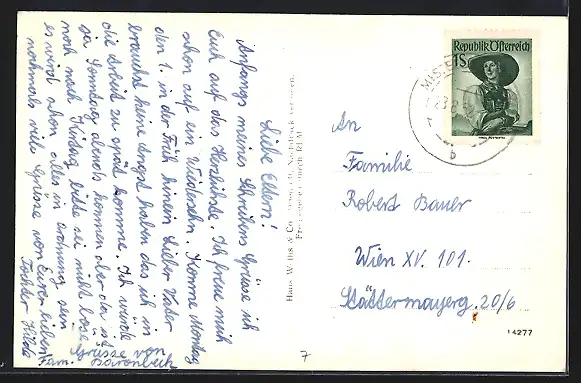 Liebe Eltern!
Anfangs meines Schreibens Grüsse ich
Euch auf das Herzlichste. Ich freue mich
schon auf ein Wiedersehn. Komme Montag
den 1. in der Früh hinein. Lieber Vater
brauchst keine Angst haben das ich in
die Arbeit zu spät komme. Ich würde
ja Sonntag abends kommen aber da ist
noch nach Kirtag bitte sei nicht böse
es wird schon alles in Ordnung sein
nochmals viele Grüsse von Eurer lieben
Tochter Hilde
Grüsse von
Fam. Baronbeck
Republik Österreich
1S
An
Familie
Robert Bauer
Wien XV. 101.
Stättermayerg. 20/6
14277
7